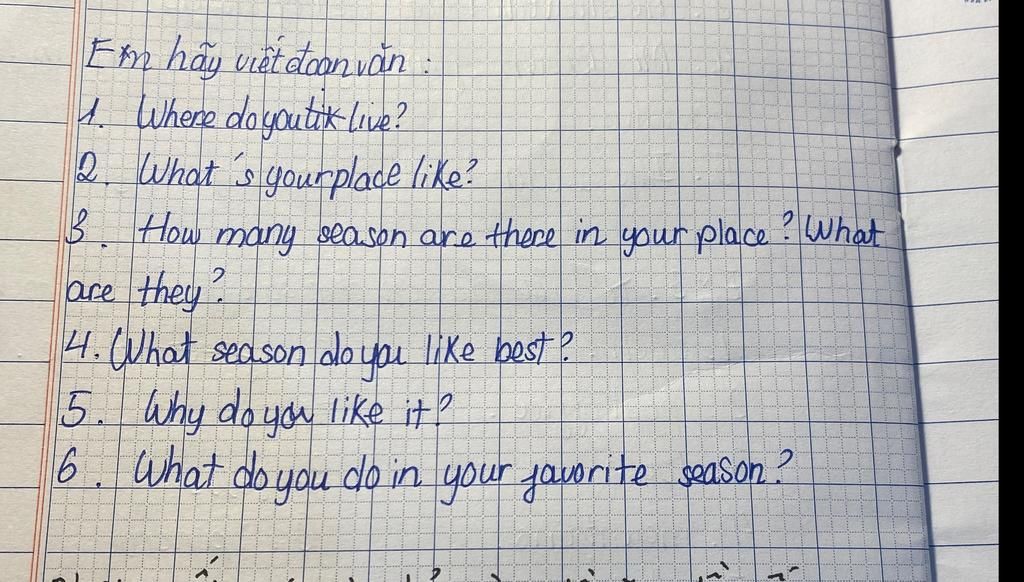 Em hãy viết đoạn văn :
1. Where do you live?
2. What's your place like?
3. How many season are there in your place? What
are they?
4. What season do you like best?
5. Why do you like it?
6. What do you do in your favorite season?